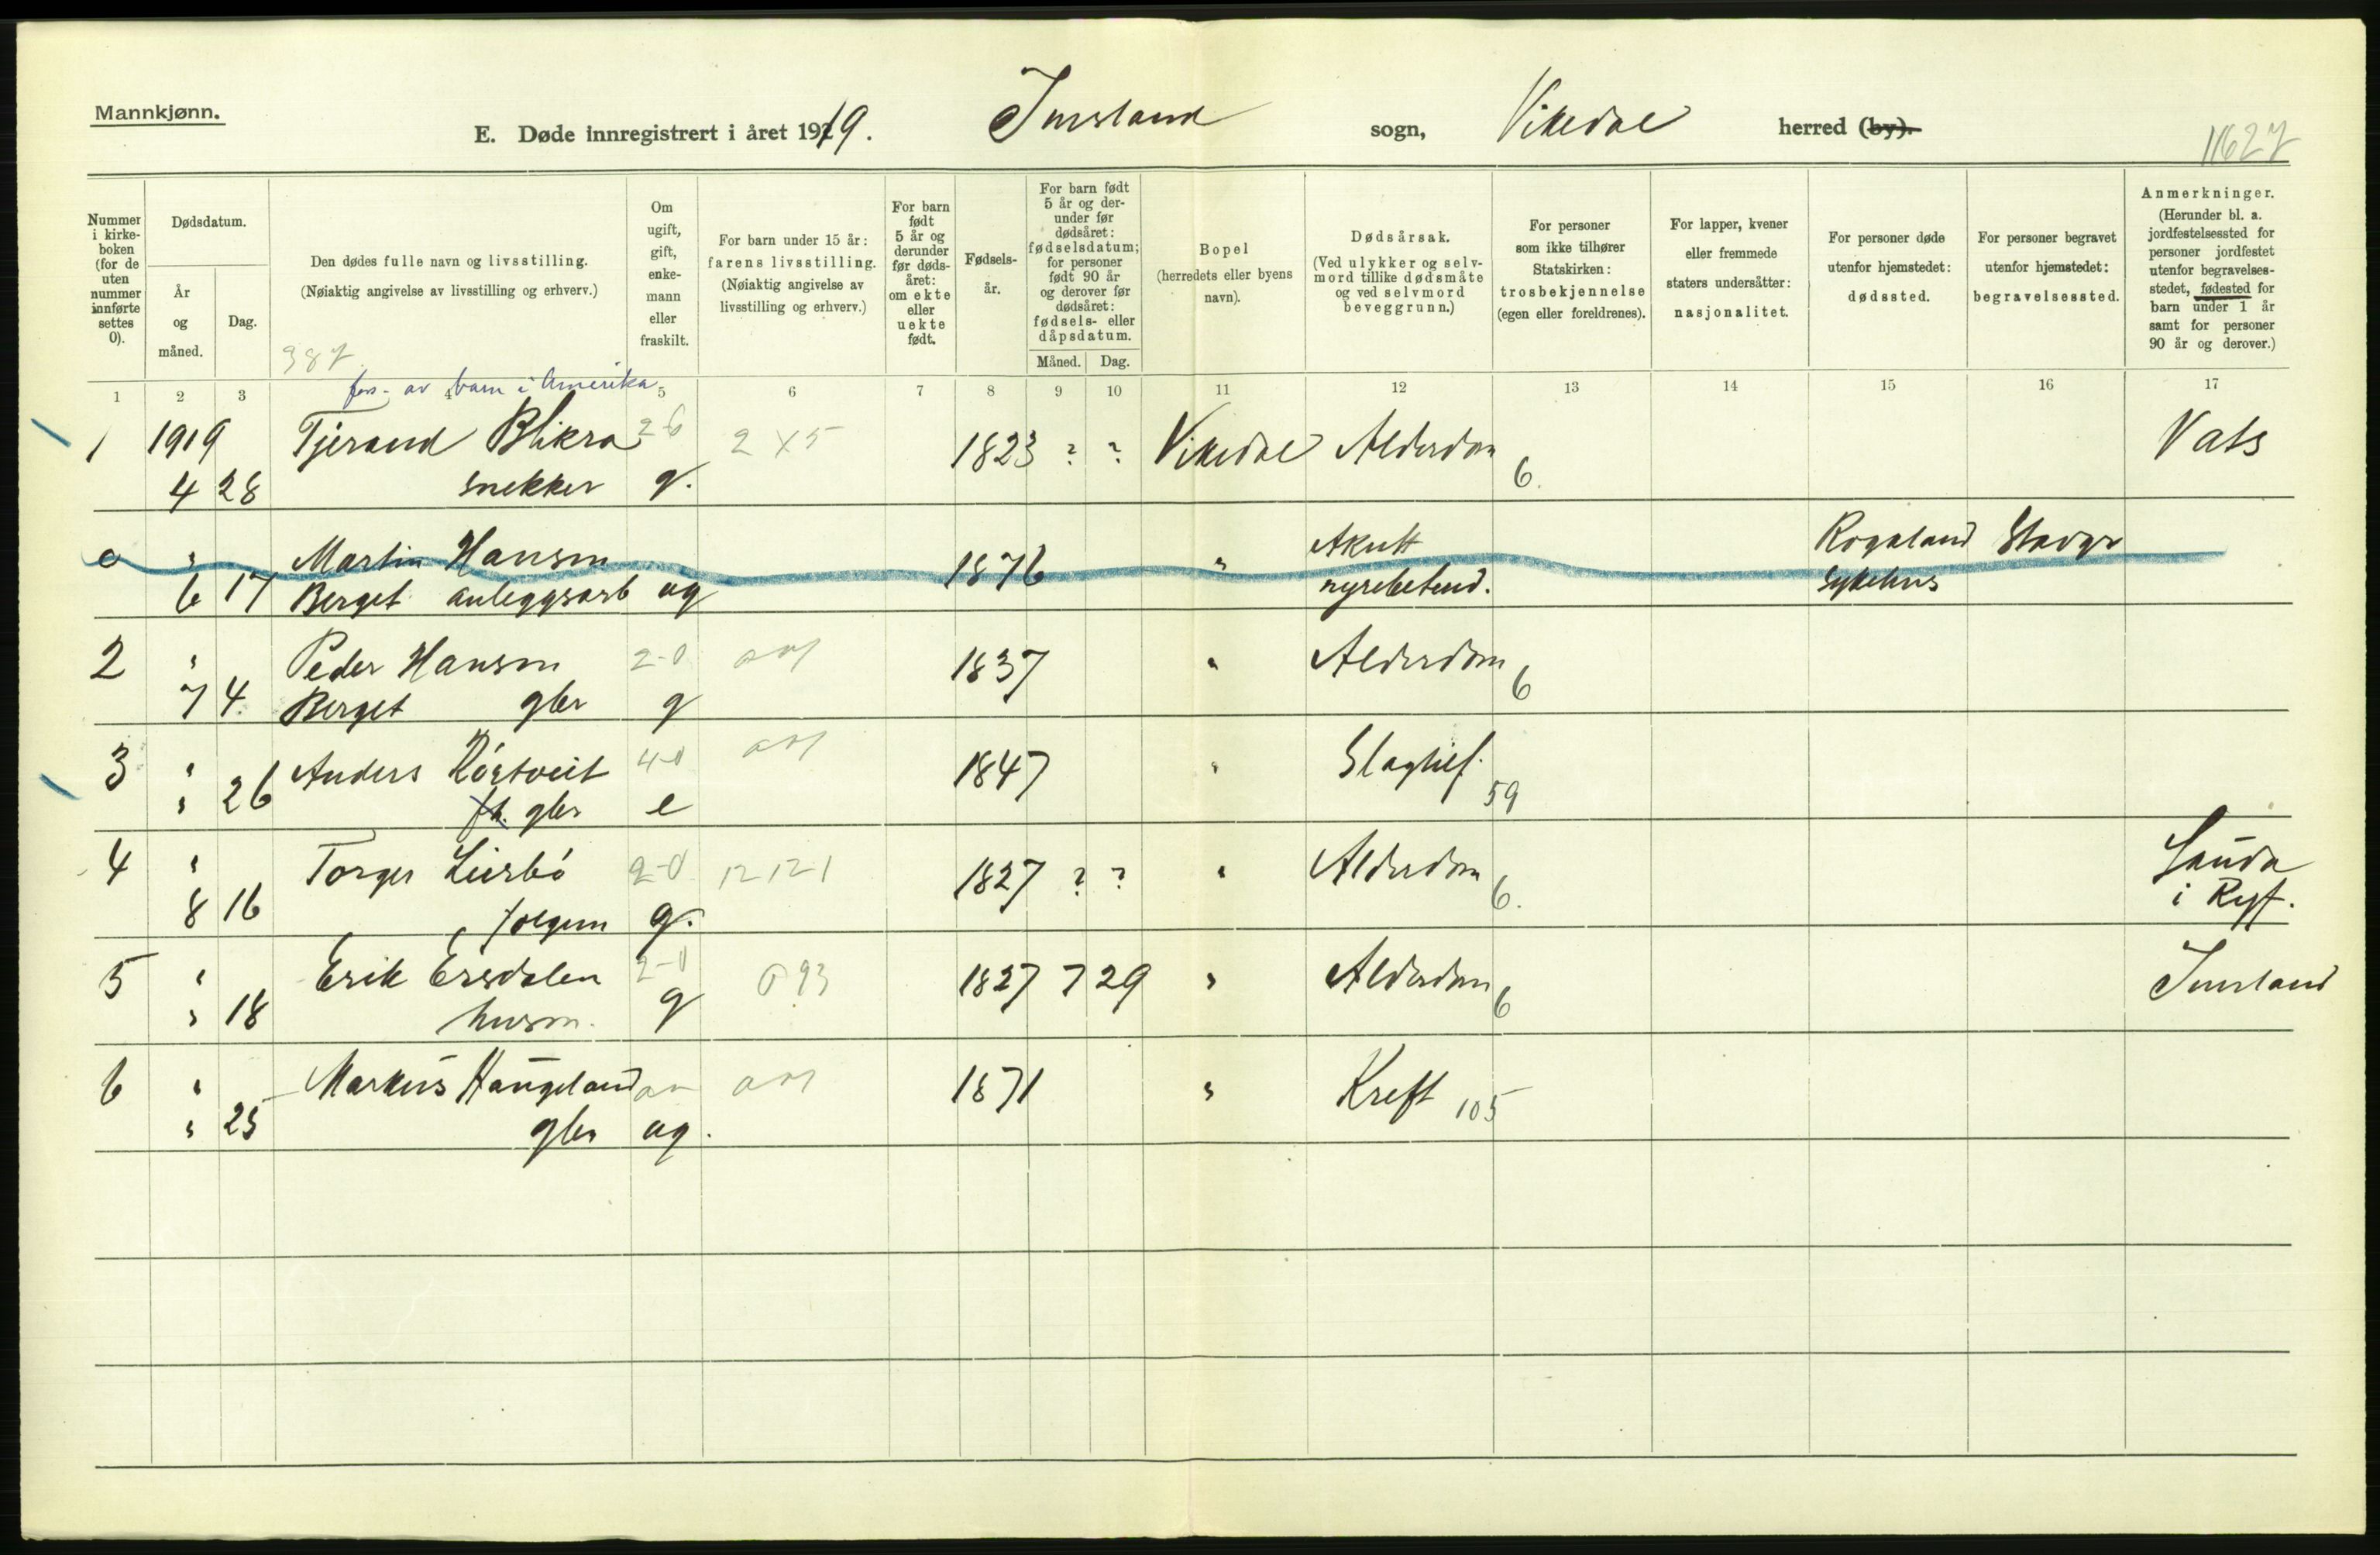 Mannkjønn.
E. Døde innregistrert i året 1919. Imsland sogn, Vikedal herred (by).
11627
Nummer i kirke-boken (for de uten nummer innførte settes 0).
Dødsdatum.
År og måned.
Dag.
Den dødes fulle navn og livsstilling.
(Nøiaktig angivelse av livsstilling og erhverv.)
387
Om ugift, gift, enke-mann eller fraskilt.
For barn under 15 år: farens livsstilling.
(Nøiaktig angivelse av livsstilling og erhverv.)
For barn født 5 år og derunder før døds-året: om ekte eller uekte født.
Fødsels-år.
For barn født 5 år og der-under før dødsåret: fødselsdatum; for personer født 90 år og derover før dødsåret: fødsels- eller dåpsdatum.
Måned. Dag.
Bopel
(herredets eller byens navn).
Dødsårsak.
(Ved ulykker og selv-mord tillike dødsmåte og ved selvmord beveggrunn.)
For personer som ikke tilhører Statskirken: trosbekjennelse (egen eller foreldrenes).
For lapper, kvener eller fremmede staters undersåtter: nasjonalitet.
For personer døde utenfor hjemstedet: dødssted.
For personer begravet utenfor hjemstedet: begravelsessted.
Anmerkninger.
(Herunder bl. a. jordfestelsessted for personer jordfestet utenfor begravelses-stedet, fødested for barn under 1 år samt for personer 90 år og derover.)
1 2 3 4 5 6 7 8 9 10 11 12 13 14 15 16 17
fors. av barn i Amerika
1 1919 Tjerand Blikra 26 2 X5 1823 ? ? Vikedal Alderdom Vats
4 28 snekker g. 6.
0 " Martin Hansen 1876 " Akutt Rogaland Stavgr
6 17 Berget anleggsarb ug nyrebetend. sykehus
2 " Peder Hansen 2-0 1837 " Alderdom
7 4. Berget gbr g 6
3 " Anders Rörtveit 4-0 1847 " Slagtilf.
" 26 fh. gbr e 59
4 " Torger Leirbó 2-0 12 12 1 1827 ? ? " Alderdom Sauda
8 16 g. 6. i Ryf.
5 " Erik Ersdalen 2-0 093 1827 7 29 " Alderdom Imsland
" 18 husm. g 6
6 " Markus Haugeland 1871 " Kreft 105
" 25 gbr ug.